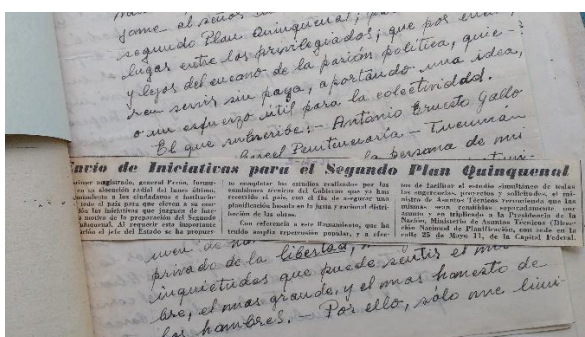 game al señor
segundo Plan Quinquenal,
lugar entre los privilegiados, que por
y lejos del encono de la pasión política, quie-
ren servir sin paga, aportando una idea,
o un esfuerzo útil para la colectividad.
El que subscribe:- Antonio Ernesto Gallo
Cárcel Penitenciaría - Tucumán
la persona de mi
Envío de Iniciativas para el Segundo Plan Quinquenal
primer magistrado, general Perón, formu-
en su alocución radial del lunes último,
llamamiento a los ciudadanos e institucio-
todo el país para que eleven a su con-
ción las iniciativas que juzguen de har-
a motivo de la preparación del Segundo
Quinquenal. Al requerir esta importante
ción el jefe del Estado se ha propues-
to completar los estudios realizados por los
organismos técnicos del Gobierno que ya han
recorrido el país, con el fin de asegurar una
planificación basada en la justa y racional distri-
bución de las obras.
Con referencia a este llamamiento, que ha
tenido amplia repercusión popular, y a efec-
tos de facilitar el estudio simultáneo de todas
las sugerencias, proyectos y solicitudes, el mi-
nistro de Asuntos Técnicos recomienda que las
mismas sean remitidas separadamente por
asunto y en triplicado a la Presidencia de la
Nación, Ministerio de Asuntos Técnicos (Direc-
ción Nacional de Planificación), con sede en la
calle 25 de Mayo 11, de la Capital Federal.
privado de la libertad,
inquietudes que puede sentir el
bre, el mas grande, y el mas honesto de
los hombres. - Por ello, sólo me limi-